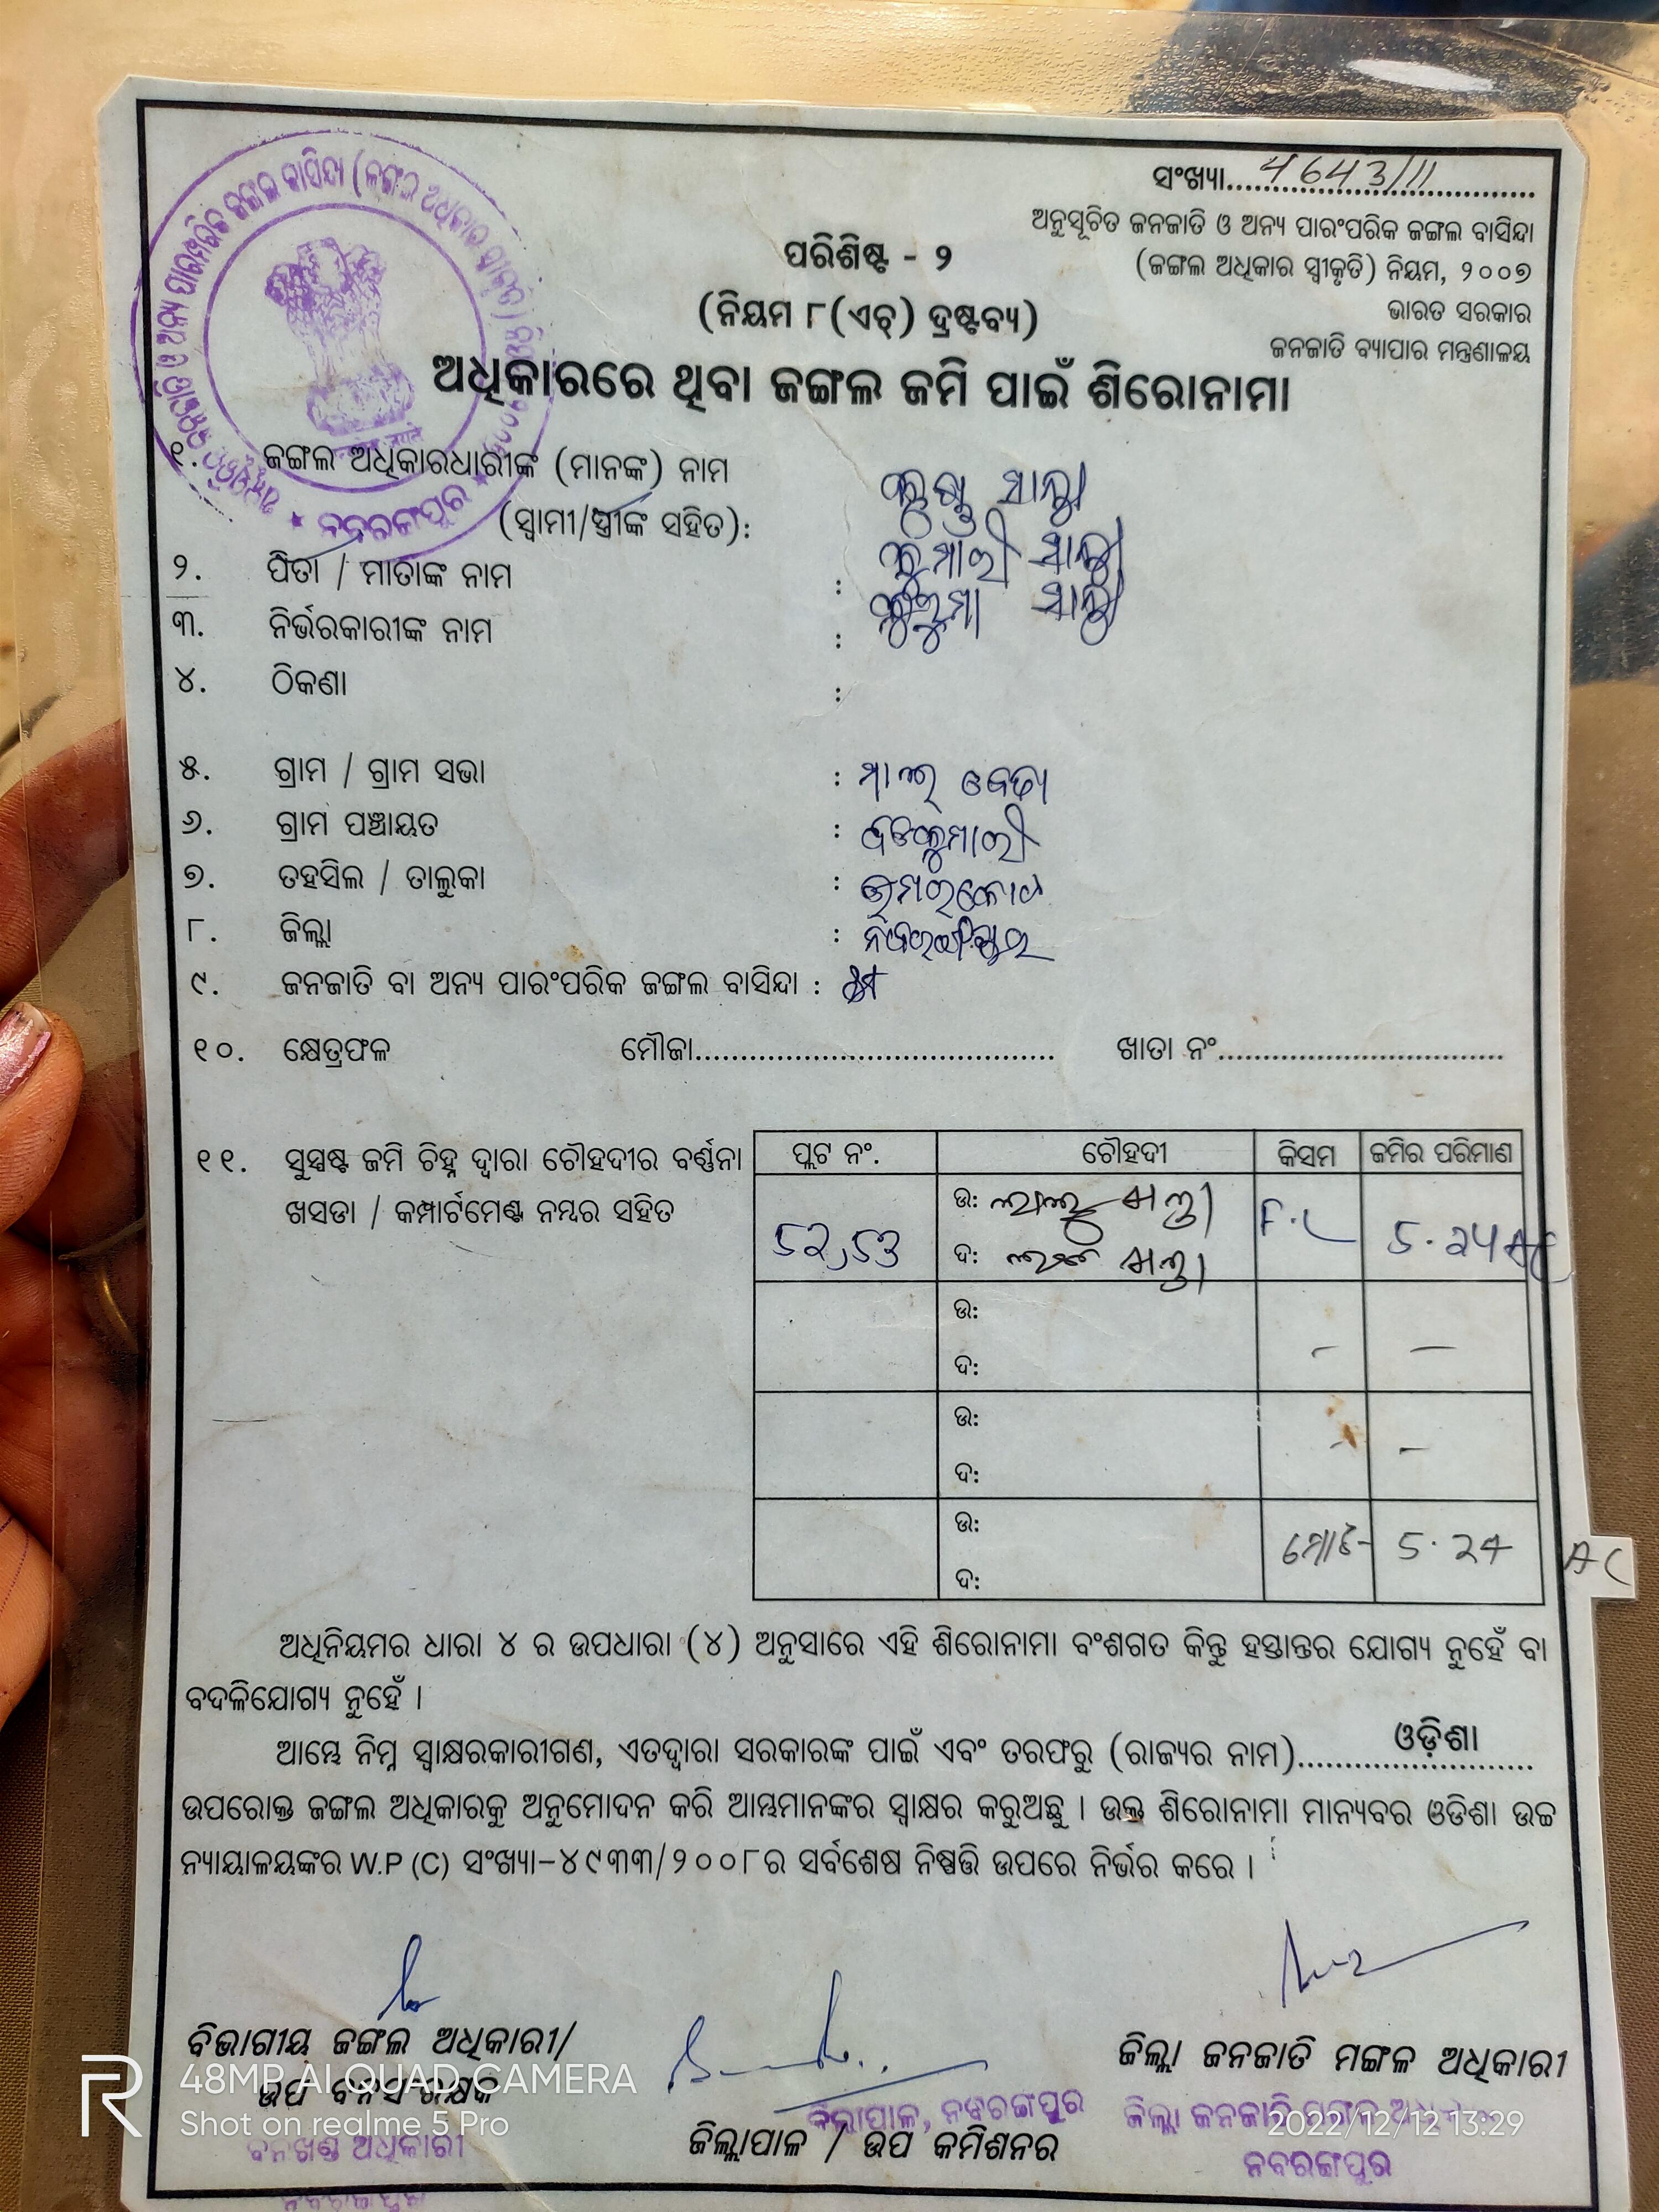 ସଂଖ୍ୟା.... 4643/11
ଅନୁସୂଚିତ ଜନଜାତି ଓ ଅନ୍ୟ ପାରଂପରିକ ଜଙ୍ଗଲ ବାସିନ୍ଦା
(ଜଙ୍ଗଲ ଅଧିକାର ସ୍ୱୀକୃତି) ନିୟମ, ୨୦୦୭
ଭାରତ ସରକାର
ଜନଜାତି ବ୍ୟାପାର ମନ୍ତ୍ରଣାଳୟ
ପରିଶିଷ୍ଟ - ୨
(ନିୟମ ୮(ଏଚ୍) ଦ୍ରଷ୍ଟବ୍ୟ)
ଅଧିକାରରେ ଥିବା ଜଙ୍ଗଲ ଜମି ପାଇଁ ଶିରୋନାମା
୧. ଜଙ୍ଗଲ ଅଧିକାରଧାରୀଙ୍କ (ମାନଙ୍କ) ନାମ
(ସ୍ୱାମୀ/ସ୍ତ୍ରୀଙ୍କ ସହିତ):
୨. ପିତା / ମାତାଙ୍କ ନାମ :
୩. ନିର୍ଭରକାରୀଙ୍କ ନାମ :
୪. ଠିକଣା :
୫. ଗ୍ରାମ / ଗ୍ରାମ ସଭା :
୬. ଗ୍ରାମ ପଞ୍ଚାୟତ :
୭. ତହସିଲ / ତାଲୁକା : ଉମରକୋଟ
୮. ଜିଲ୍ଲା : ନବରଙ୍ଗପୁର
୯. ଜନଜାତି ବା ଅନ୍ୟ ପାରଂପରିକ ଜଙ୍ଗଲ ବାସିନ୍ଦା :
୧୦. କ୍ଷେତ୍ରଫଳ ମୌଜା.... ଖାତା ନଂ....
୧୧. ସୁସ୍ପଷ୍ଟ ଜମି ଚିହ୍ନ ଦ୍ୱାରା ଚୌହଦୀର ବର୍ଣ୍ଣନା
ଖସଡା / କମ୍ପାର୍ଟମେଣ୍ଟ ନମ୍ବର ସହିତ
ପ୍ଲଟ ନଂ. ଚୌହଦୀ କିସମ ଜମିର ପରିମାଣ
52,53 ଉ: F.L 5.24 AC
ଦ:
ଉ:
ଦ:
ଉ:
ଦ:
ଉ: ମୋଟ 5.24 AC
ଦ:
ଅଧିନିୟମର ଧାରା ୪ ର ଉପଧାରା (୪) ଅନୁସାରେ ଏହି ଶିରୋନାମା ବଂଶଗତ କିନ୍ତୁ ହସ୍ତାନ୍ତର ଯୋଗ୍ୟ ନୁହେଁ ବା
ବଦଳିଯୋଗ୍ୟ ନୁହେଁ ।
ଆମ୍ଭେ ନିମ୍ନ ସ୍ୱାକ୍ଷରକାରୀଗଣ, ଏତଦ୍ୱାରା ସରକାରଙ୍କ ପାଇଁ ଏବଂ ତରଫରୁ (ରାଜ୍ୟର ନାମ).... ଓଡ଼ିଶା
ଉପରୋକ୍ତ ଜଙ୍ଗଲ ଅଧିକାରକୁ ଅନୁମୋଦନ କରି ଆମ୍ଭମାନଙ୍କର ସ୍ୱାକ୍ଷର କରୁଅଛୁ । ଉକ୍ତ ଶିରୋନାମା ମାନ୍ୟବର ଓଡିଶା ଉଚ୍ଚ
ନ୍ୟାୟାଳୟଙ୍କର W.P (C) ସଂଖ୍ୟା-୪୯୩୩/୨୦୦୮ର ସର୍ବଶେଷ ନିଷ୍ପତ୍ତି ଉପରେ ନିର୍ଭର କରେ ।
ବିଭାଗୀୟ ଜଙ୍ଗଲ ଅଧିକାରୀ/
ଉପ ବନସଂରକ୍ଷକ
ବନଖଣ୍ଡ ଅଧିକାରୀ
ନବରଙ୍ଗପୁର
ଜିଲ୍ଲାପାଳ, ନବରଙ୍ଗପୁର
ଜିଲ୍ଲାପାଳ / ଉପ କମିଶନର
ଜିଲ୍ଲା ଜନଜାତି ମଙ୍ଗଳ ଅଧିକାରୀ
ଜିଲ୍ଲା ଜନଜାତି ମଙ୍ଗଳ
ନବରଙ୍ଗପୁର
48MP AI QUAD CAMERA
Shot on realme 5 Pro
2022/12/12 13:29